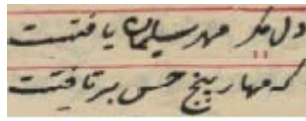 دل مگر مهر سلیمان یافتست
که مهار پنج حس برتافتست